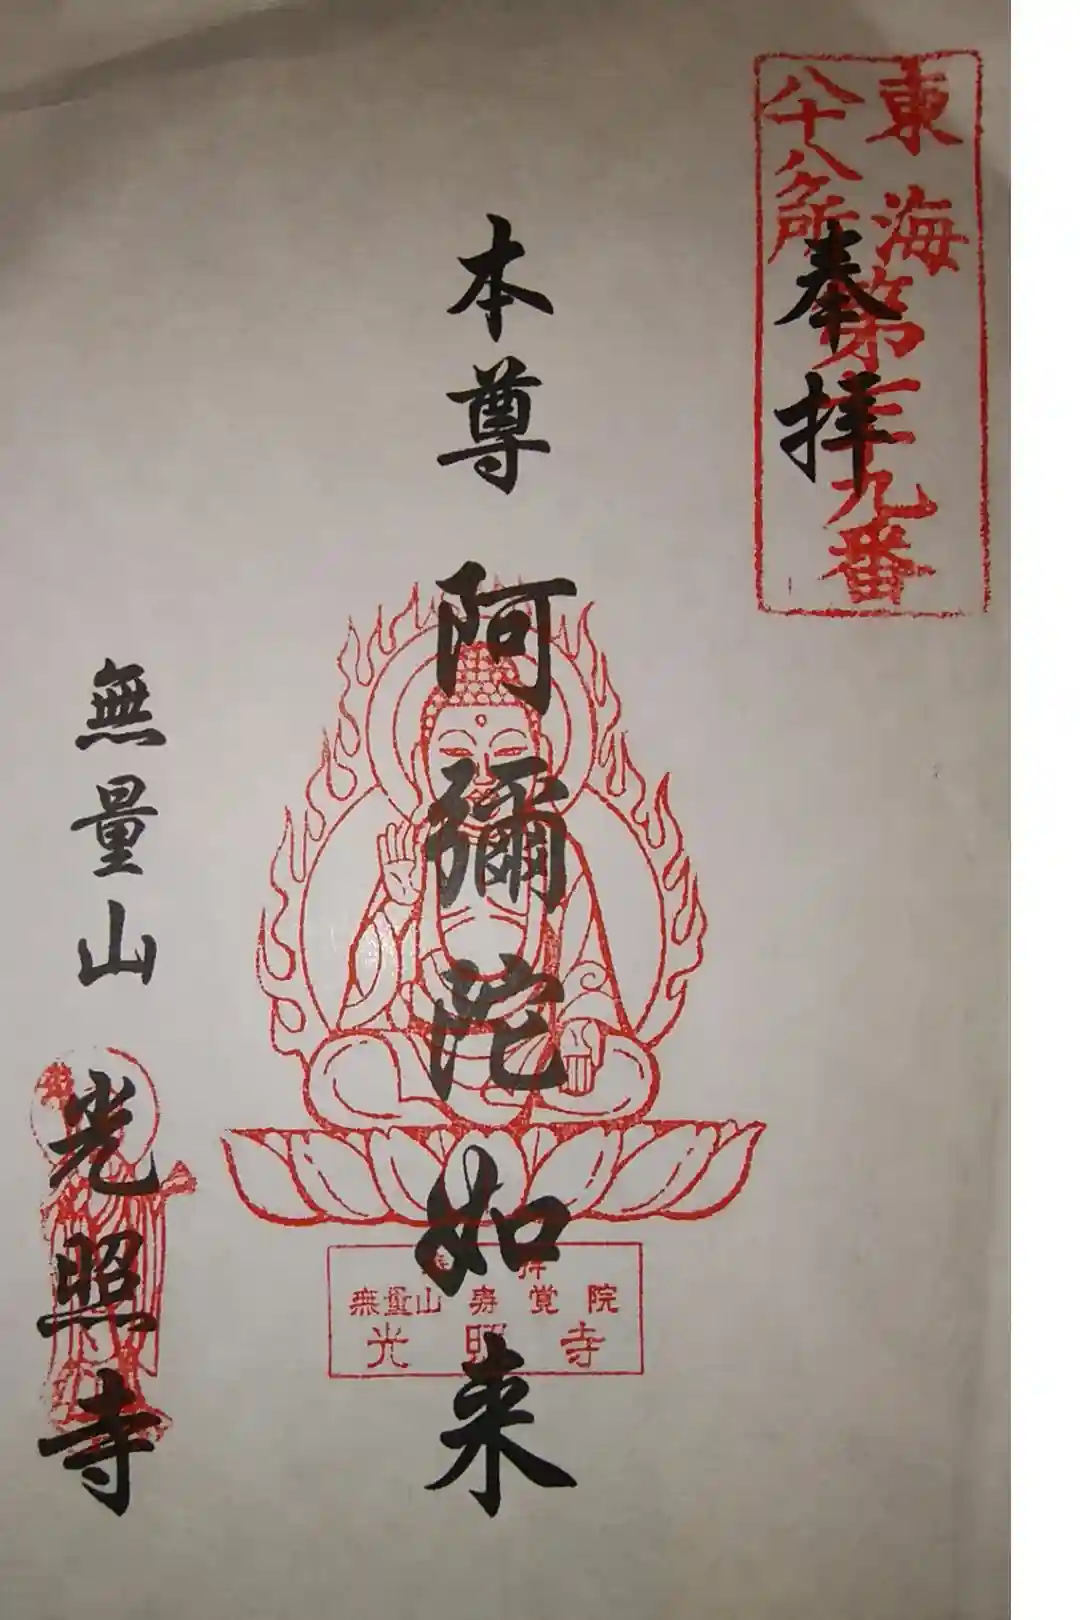 東海
八十八ケ所
第三十九番
奉拝
本尊 阿彌陀如来
無量山 壽覚院
光照寺
無量山
光照寺